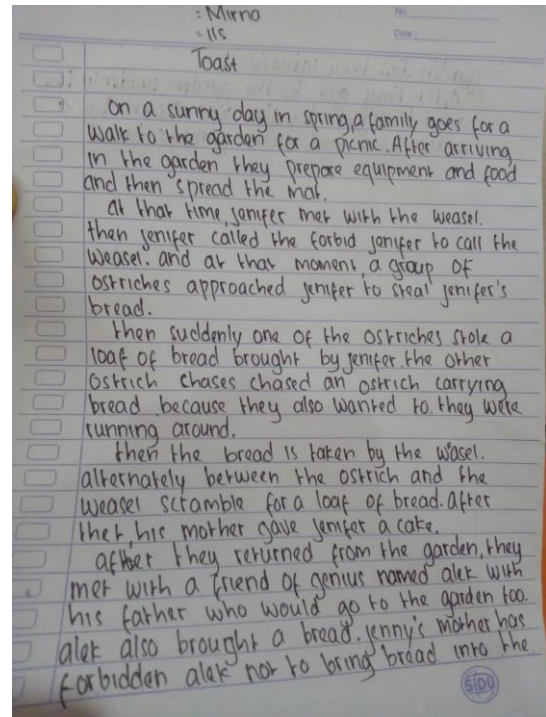 : Mirna
: IIS
No.
Date:
Toast
on a sunny day in spring, a family goes for a
walk to the garden for a picnic. After arriving
in the garden they prepare equipment and food
and then spread the mat.
at that time, jenifer met with the weasel.
then jenifer called the forbid jenifer to call the
weasel. and at that moment, a group of
ostriches approached jenifer to steal jenifer's
bread.
then suddenly one of the ostriches stole a
loaf of bread brought by jenifer. the other
ostrich chases chased an ostrich carrying
bread because they also wanted to. they were
running around.
then the bread is taken by the wasel.
alternately between the ostrich and the
weasel scramble for a loaf of bread. after
ther, his mother gave jenifer a cake.
after they returned from the garden, they
met with a friend of genius named alek with
his father who would go to the garden too.
alek also brought a bread. jenny's mother has
forbidden alek not to bring bread into the
SIDU